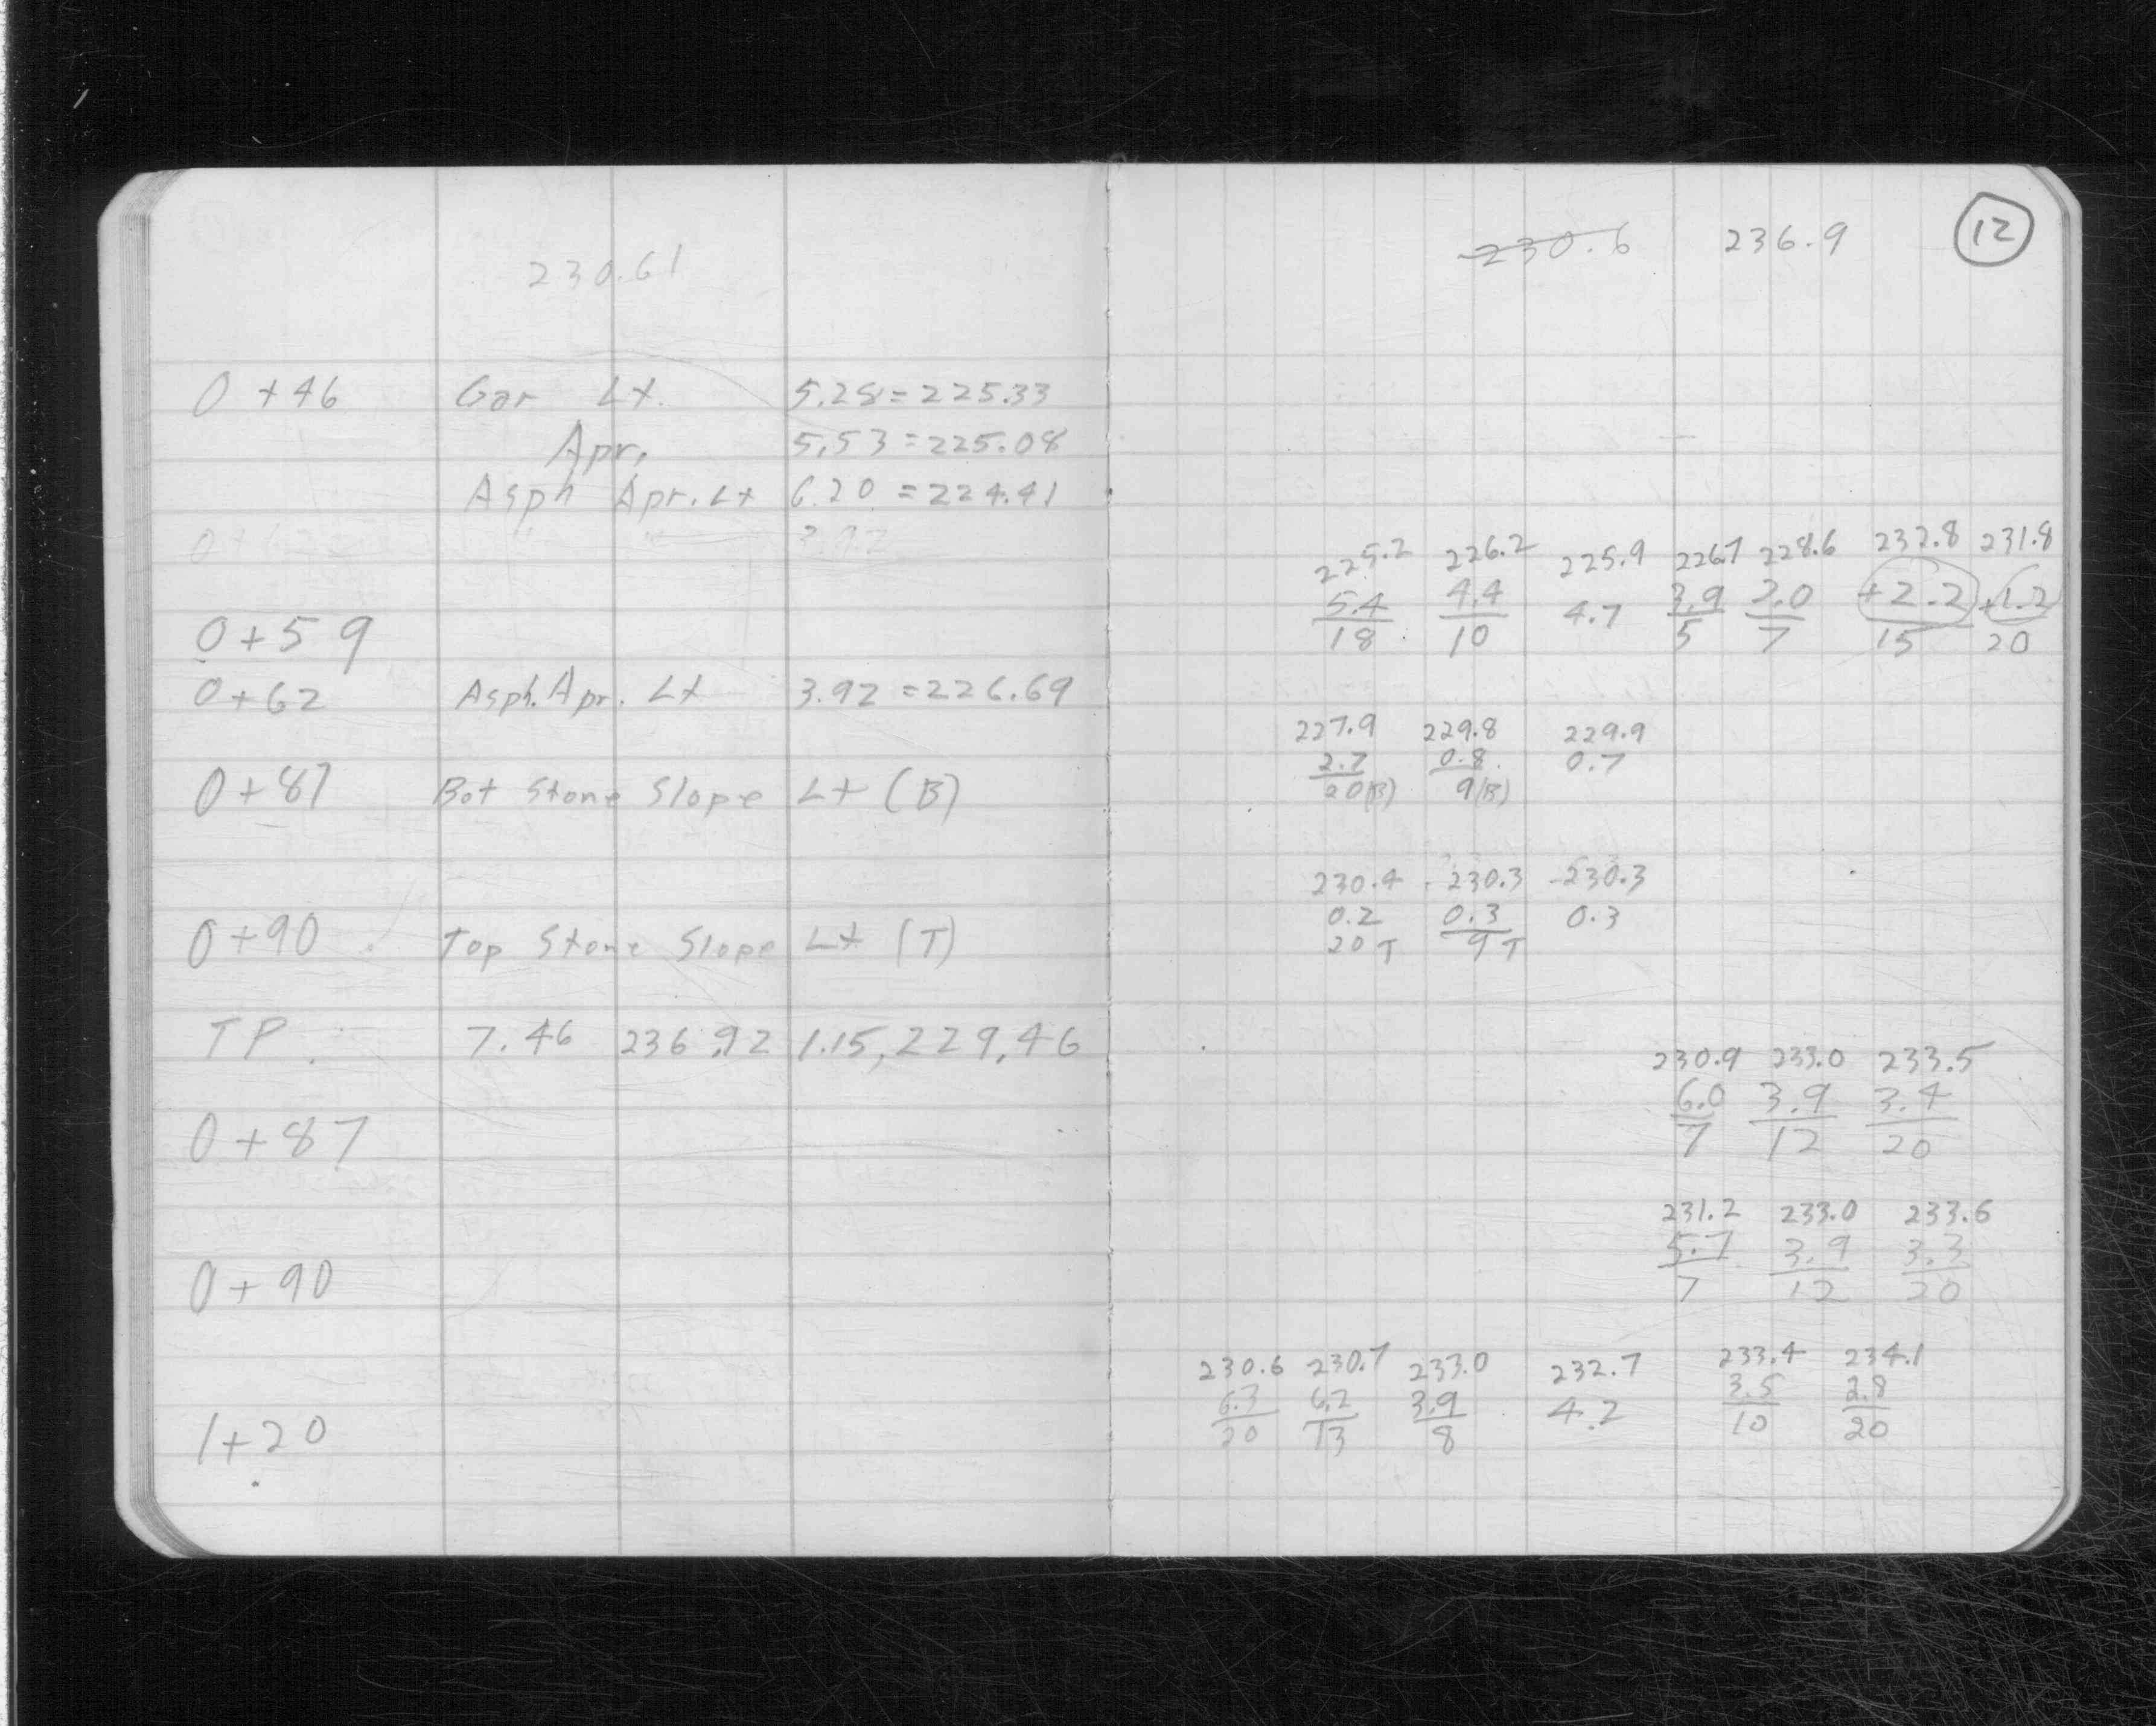 230.61
0+46 Gar Lt. 5.28=225.33
Apr. 5.53=225.08
Asph Apr. Lt 6.20=224.41
0+62 3.92
0+59
0+62 Asph. Apr. Lt 3.92=226.69
0+87 Bot Stone Slope Lt (B)
0+90 Top Stone Slope Lt (T)
TP. 7.46 236.92 1.15, 229.46
0+87
0+90
1+20
230.6 236.9 12
225.2 226.2 225.9 226.7 228.6 232.8 231.8
5.4 4.4 4.7 3.9 2.0 +2.2 +1.2
18 10 5 7 15 20
227.9 229.8 229.9
2.7 0.8 0.7
20(B) 9(B)
230.4 230.3 230.3
0.2 0.3 0.3
20 T 9 T
230.9 233.0 233.5
6.0 3.9 3.4
7 12 20
231.2 233.0 233.6
5.7 3.9 3.3
7 12 20
230.6 230.7 233.0 232.7 233.4 234.1
6.3 6.2 3.9 4.2 3.5 2.8
20 13 8 10 20